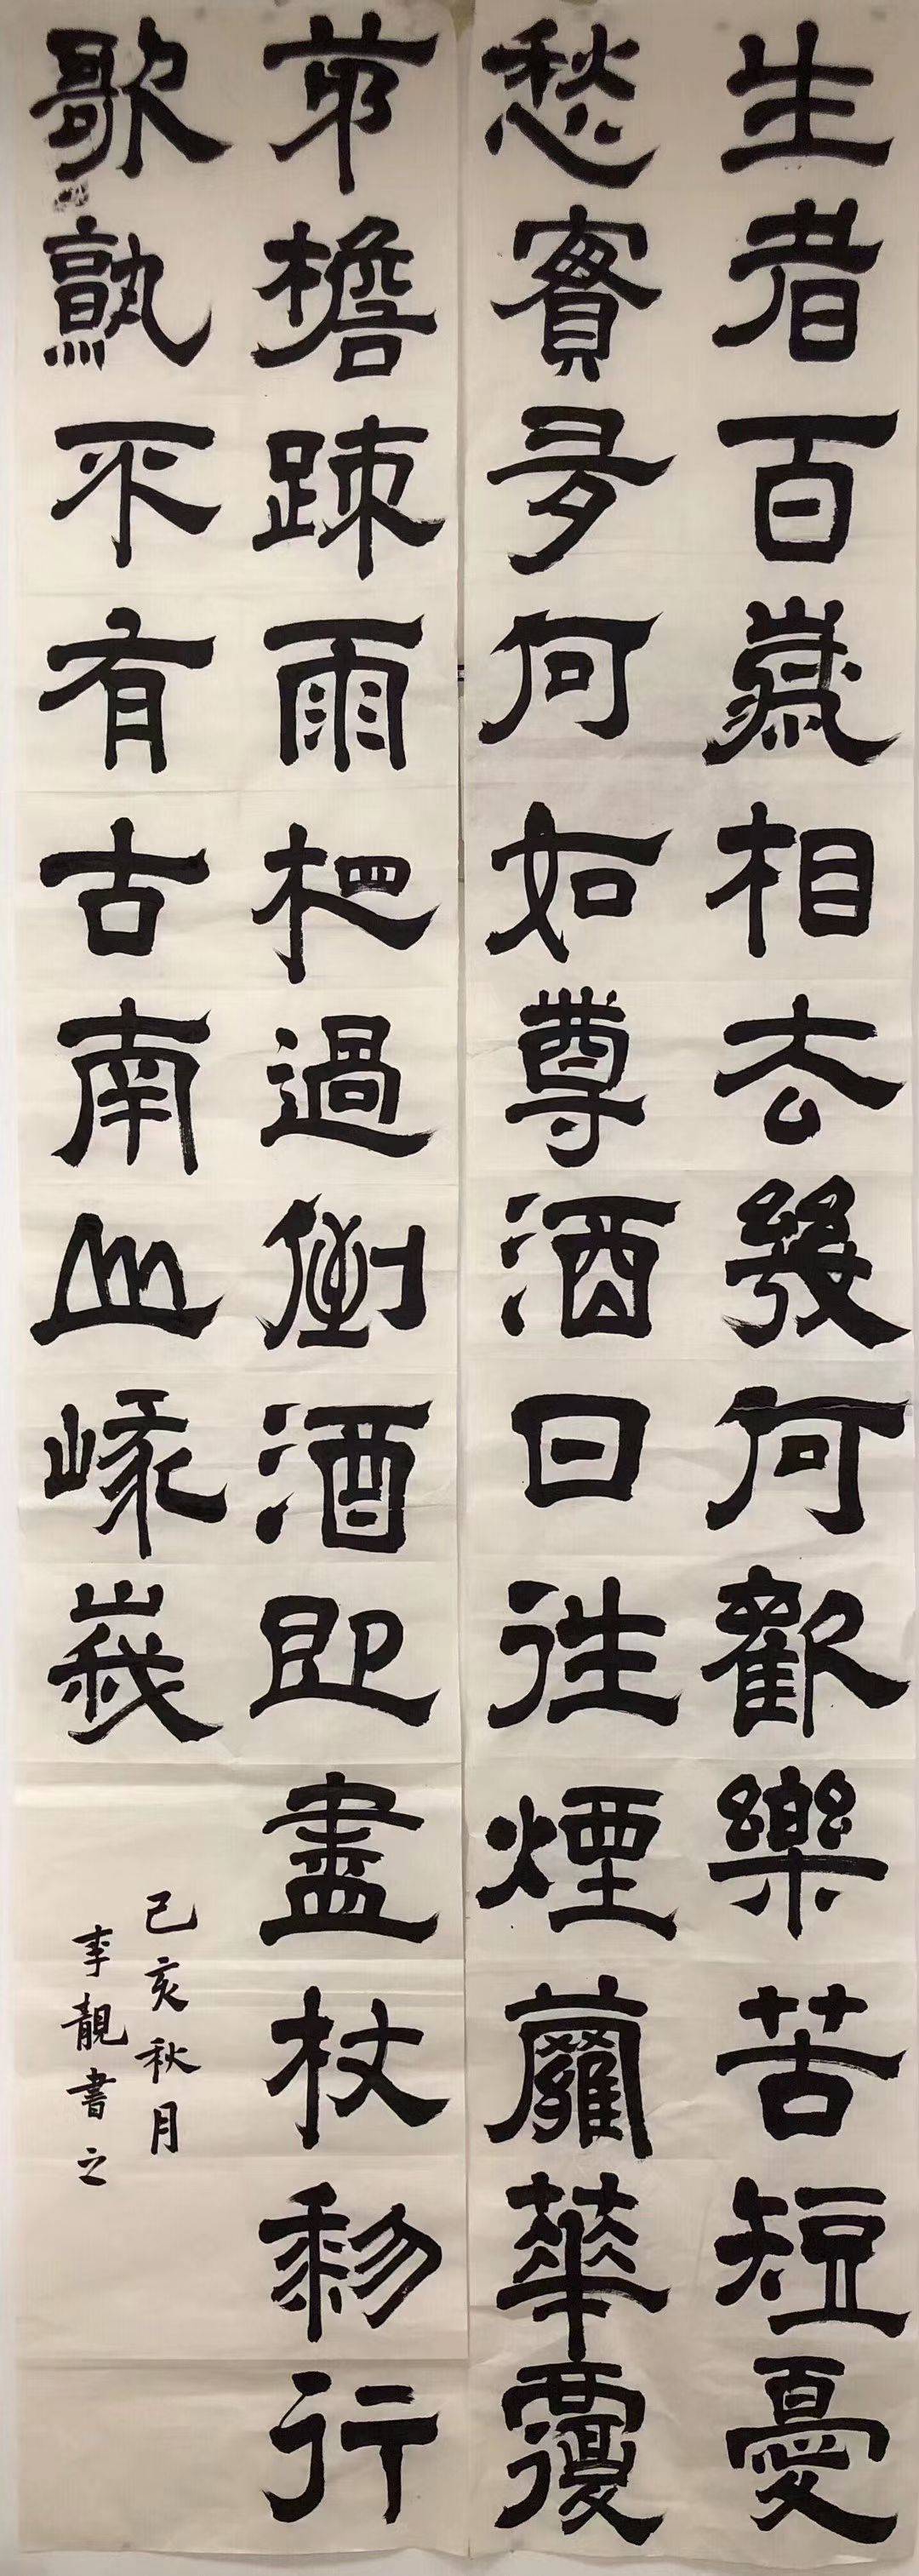 生者百歲相去幾何歡樂苦短憂
愁實多何如尊酒日往煙蘿華覆
茆檐踈雨相過倒酒即盡杖黎行
歌熟不有古南山峨峩
己亥秋月
李靚書之